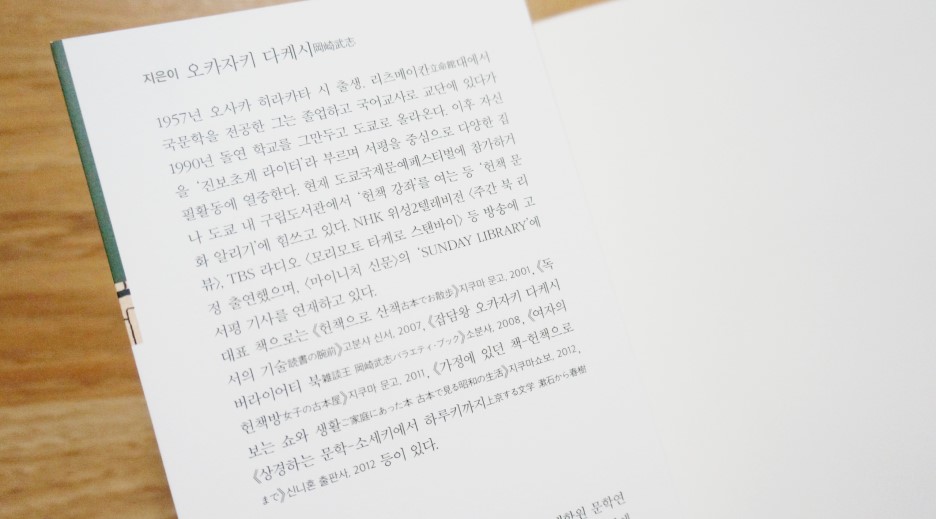 지은이 오카자키 다케시岡崎武志
1957년 오사카 히라카타 시 출생. 리츠메이칸立命館대에서
국문학을 전공한 그는 졸업하고 국어교사로 교단에 있다가
1990년 돌연 학교를 그만두고 도쿄로 올라온다. 이후 자신
을 ‘진보초계 라이터’라 부르며 서평을 중심으로 다양한 집
필활동에 열중한다. 현재 도쿄국제문예페스티벌에 참가하거
나 도쿄 내 구립도서관에서 ‘헌책 강좌’를 여는 등 ‘헌책 문
화 알리기’에 힘쓰고 있다. NHK 위성2텔레비전 〈주간 북 리
뷰〉, TBS 라디오 〈모리모토 타케로 스탠바이〉 등 방송에 고
정 출연했으며, 〈마이니치 신문〉의 ‘SUNDAY LIBRARY’에
서평 기사를 연재하고 있다.
대표 책으로는 《헌책으로 산책古本でお散歩》지쿠마 문고, 2001, 《독
서의 기술読書の腕前》고분샤 신서, 2007, 《잡담왕 오카자키 다케시
버라이어티 북雑談王 岡崎武志バラエティ・ブック》소분샤, 2008, 《여자의
헌책방女子の古本屋》지쿠마 문고, 2011, 《가정에 있던 책-헌책으로
보는 쇼와 생활ご家庭にあった本 古本で見る昭和の生活》지쿠마쇼보, 2012,
《상경하는 문학-소세키에서 하루키까지上京する文学 漱石から春樹
まで》신니혼 출판사, 2012 등이 있다.
문학연